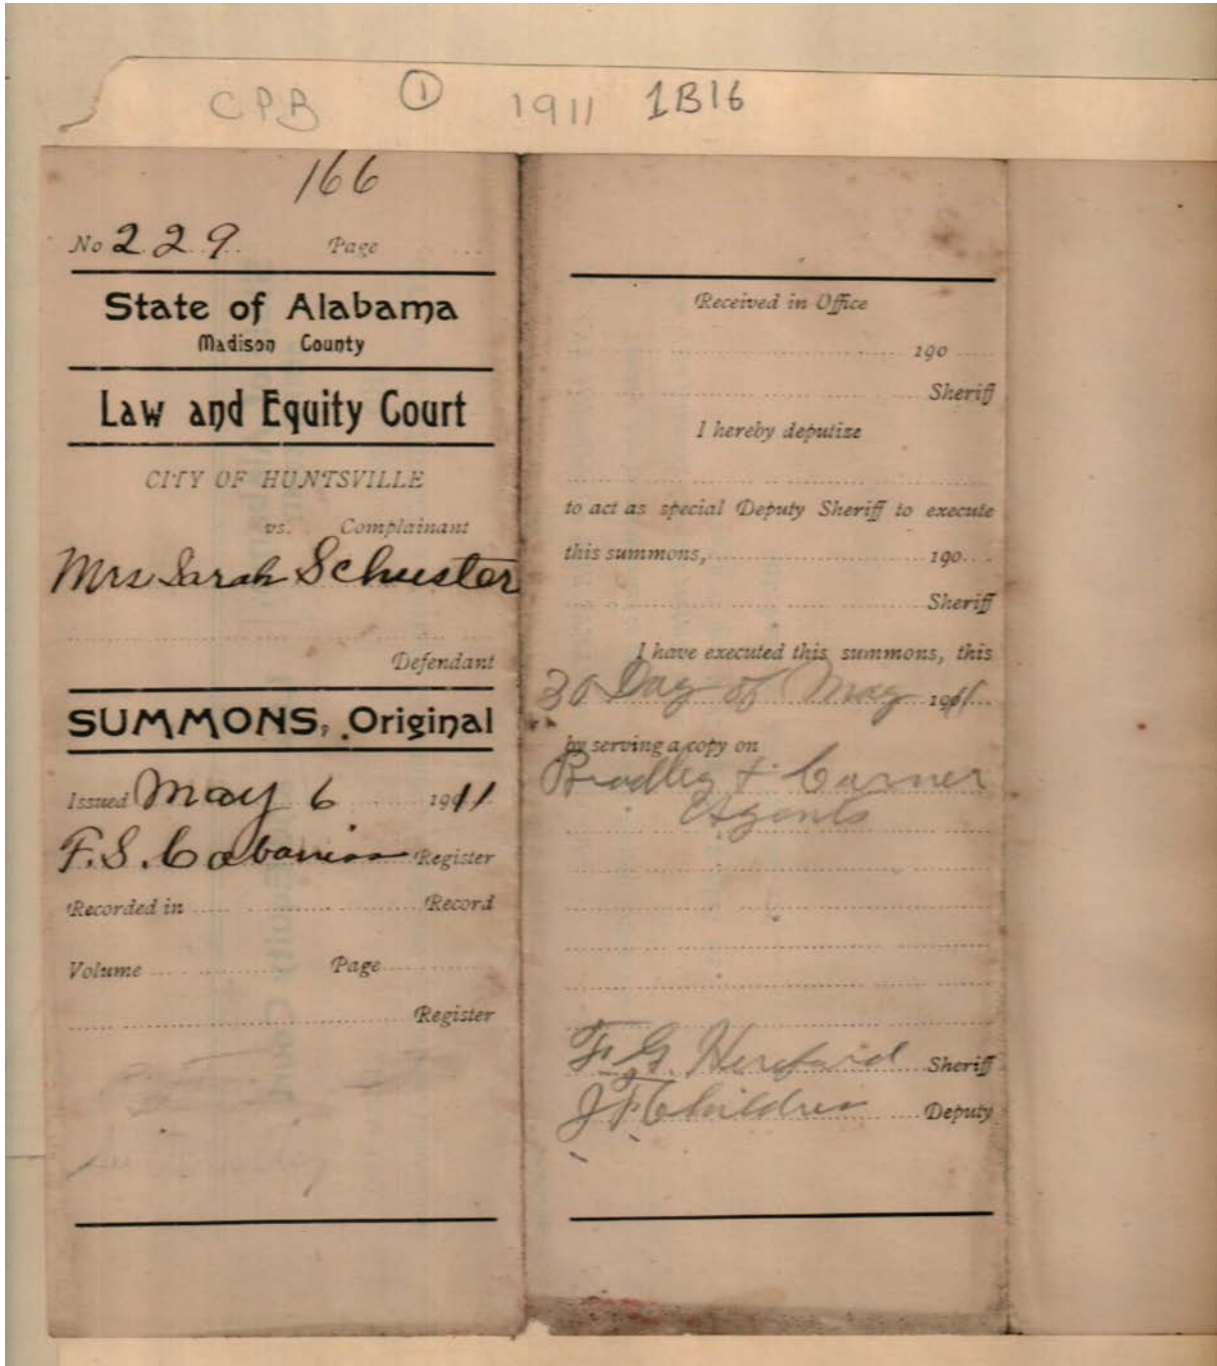 CPB ① 1911 1B16
166
No 229. Page
State of Alabama
Madison County
Law and Equity Court
CITY OF HUNTSVILLE
vs. Complainant
Mrs Sarah Schuster
Defendant
SUMMONS, Original
Issued May 6 1911
F.S. Cabaniss Register
Recorded in Record
Volume Page
Register
Received in Office
190
Sheriff
I hereby deputize
to act as special Deputy Sheriff to execute
this summons, 190
Sheriff
I have executed this summons, this
30 Day of May 1911
by serving a copy on
Bradley & Carner
Agents
F. G. Hereford Sheriff
J F Childress Deputy